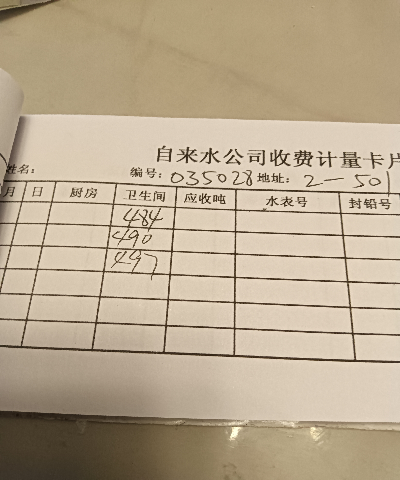 自来水公司收费计量卡片
姓名： 编号：035028 地址：2-501
月 日 厨房 卫生间 应收吨 水表号 封铅号
484
490
497